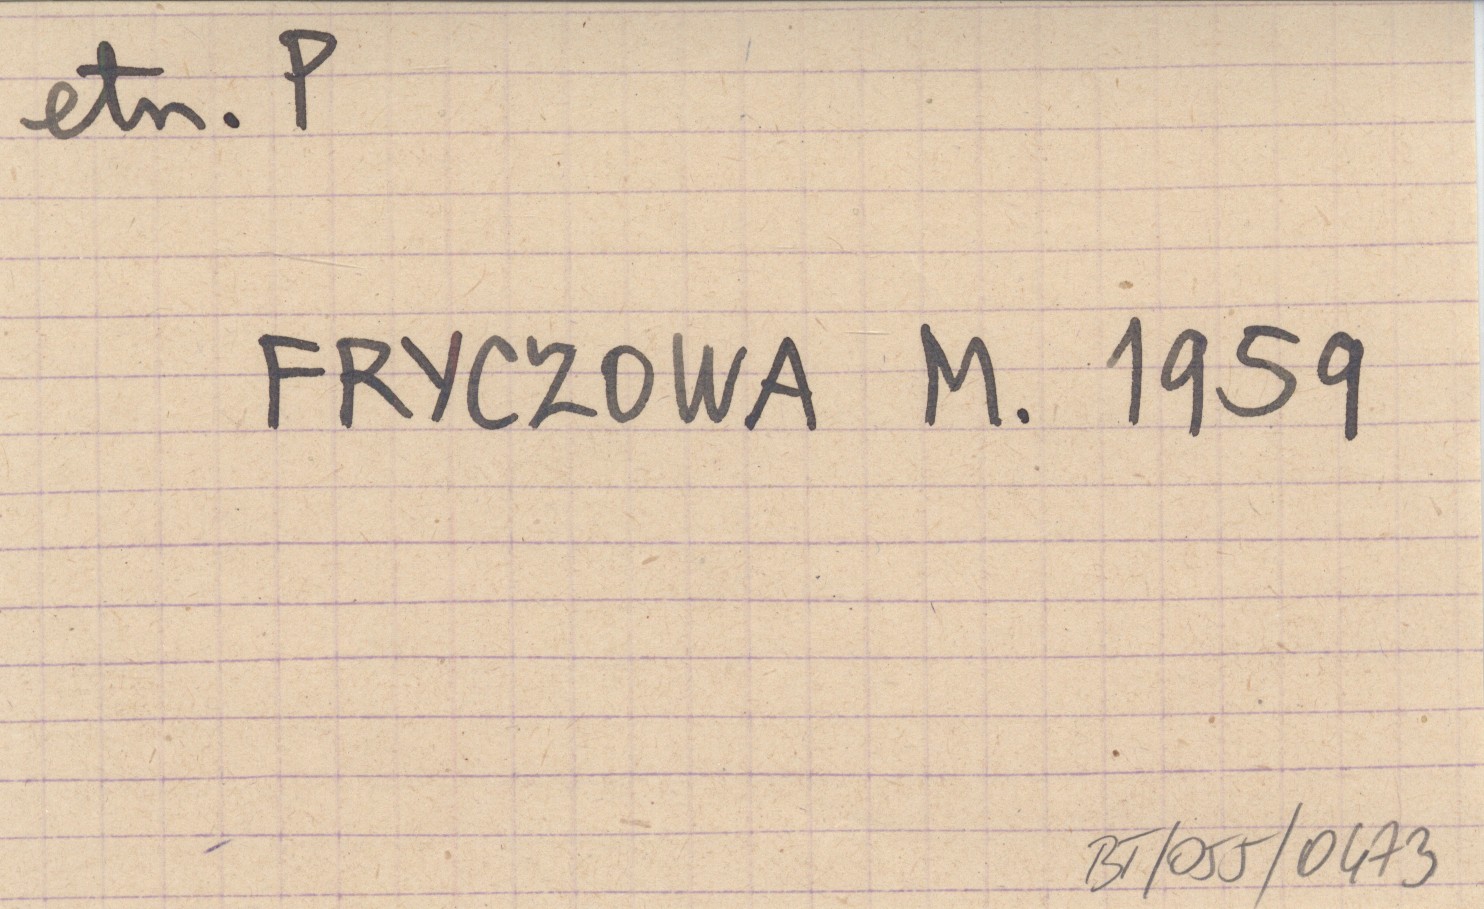 etn. P
FRYCZOWA M. 1959
BT/055/0473